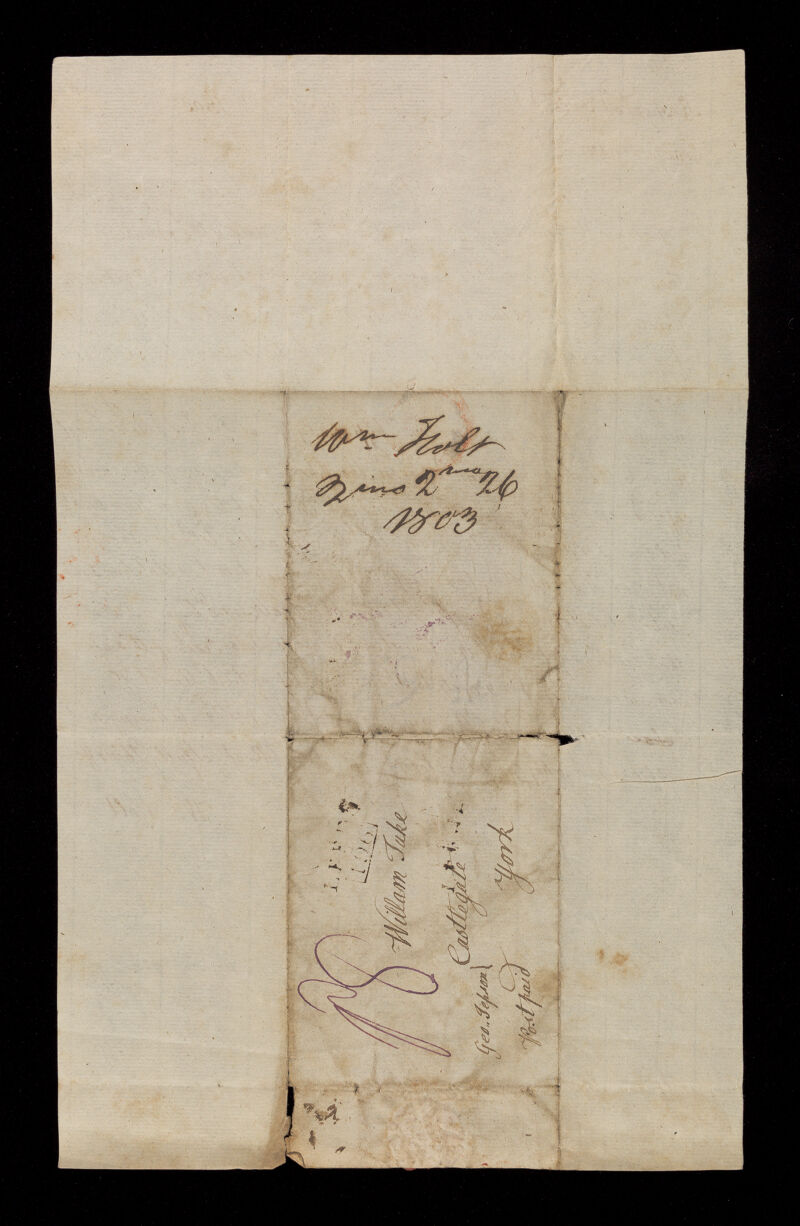 Wm Holt
2mo 26
1803
LEEDS
William Tuke
Castlegate
York
Geo. Jepson
Post paid